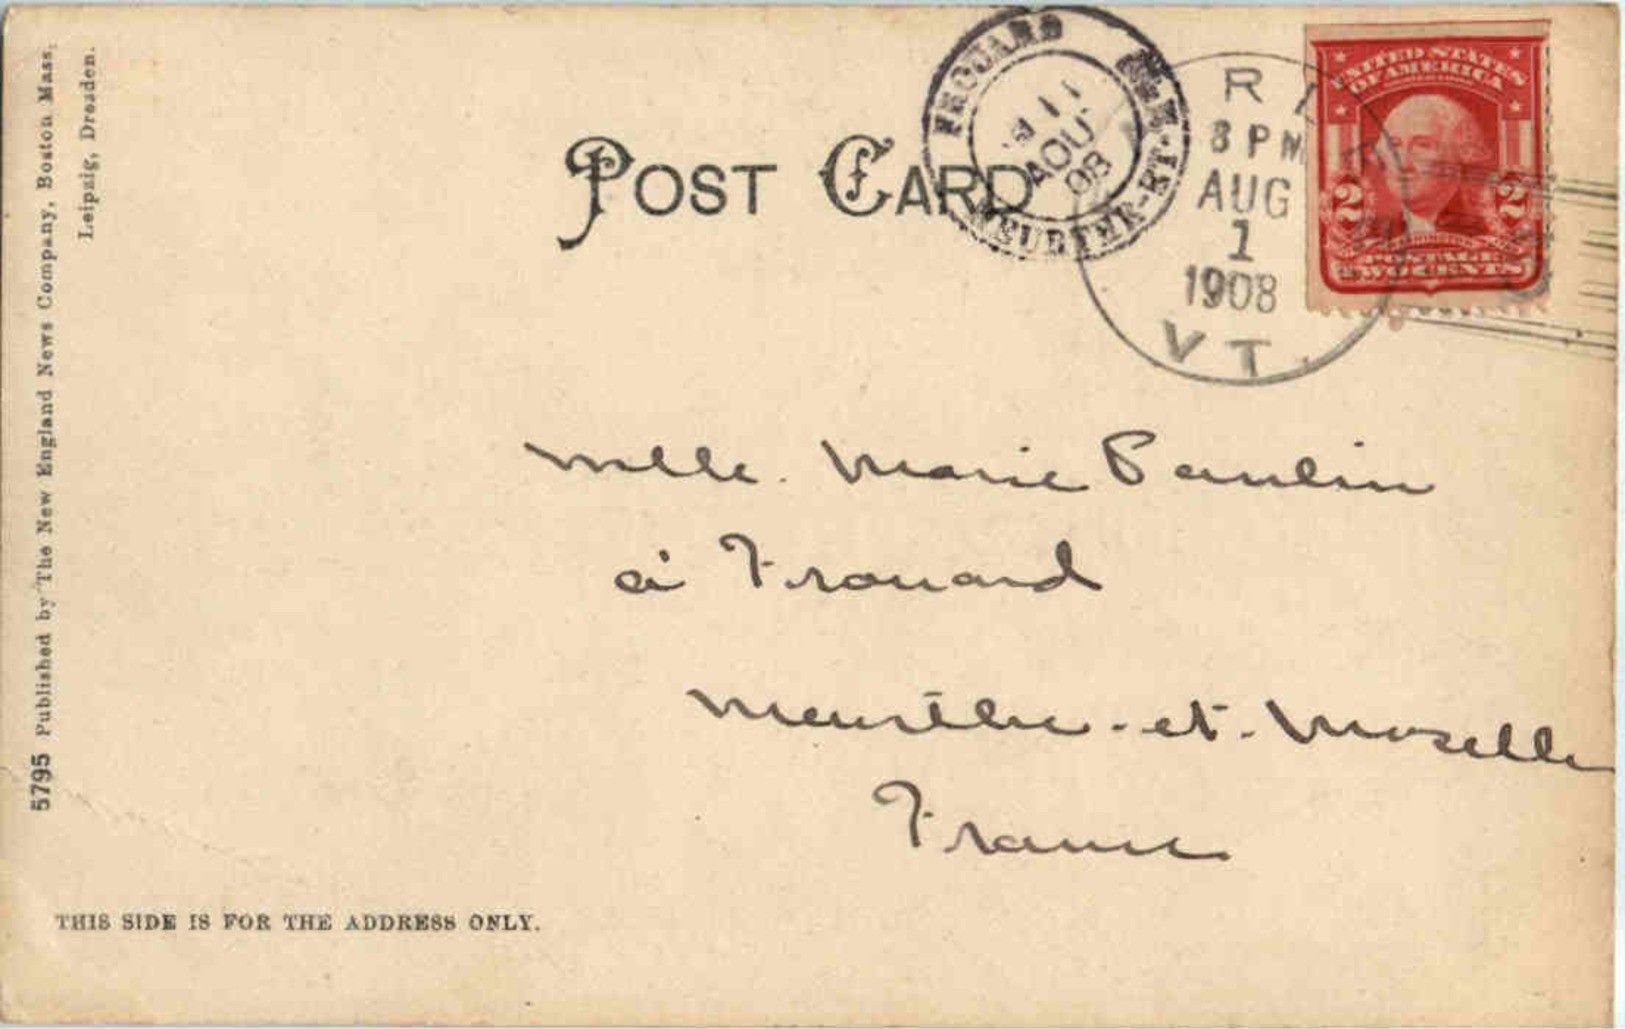 POST CARD
FROUARD
11
AOUT
08
MEURTHE-ET-
8 PM
AUG
1
1908
VT.
UNITED STATES
OF AMERICA
2 2
POSTAGE
TWO CENTS
Mlle. Marie Paulin
à Frouard
Meurthe-et-Moselle
France
5795 Published by The New England News Company, Boston Mass,
Leipzig, Dresden.
THIS SIDE IS FOR THE ADDRESS ONLY.